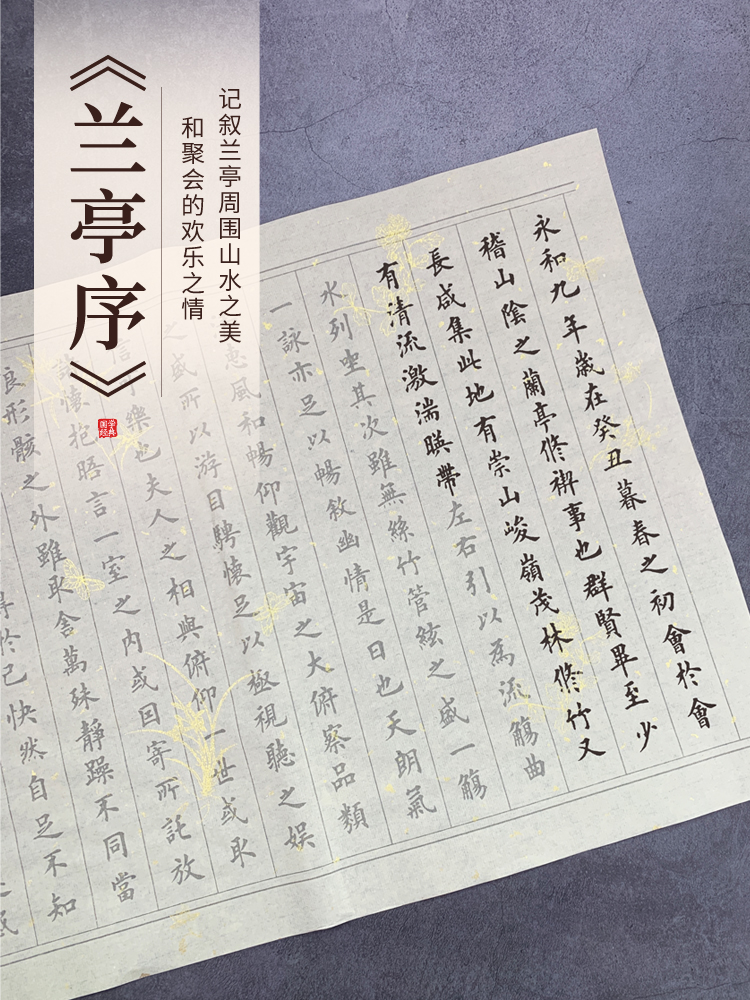 《兰亭序》
记叙兰亭周围山水之美
和聚会的欢乐之情
国学经典
永和九年歲在癸丑暮春之初會於會
稽山陰之蘭亭修禊事也群賢畢至少
長咸集此地有崇山峻嶺茂林修竹又
有清流激湍暎帶左右引以為流觴曲
水列坐其次雖無絲竹管絃之盛一觴
一詠亦足以暢敘幽情是日也天朗氣
惠風和暢仰觀宇宙之大俯察品類
之盛所以游目騁懷足以極視聽之娛
信可樂也夫人之相與俯仰一世或取
諸懷抱晤言一室之内或因寄所託放
浪形骸之外雖取舍萬殊靜躁不同當
得於己快然自足不知